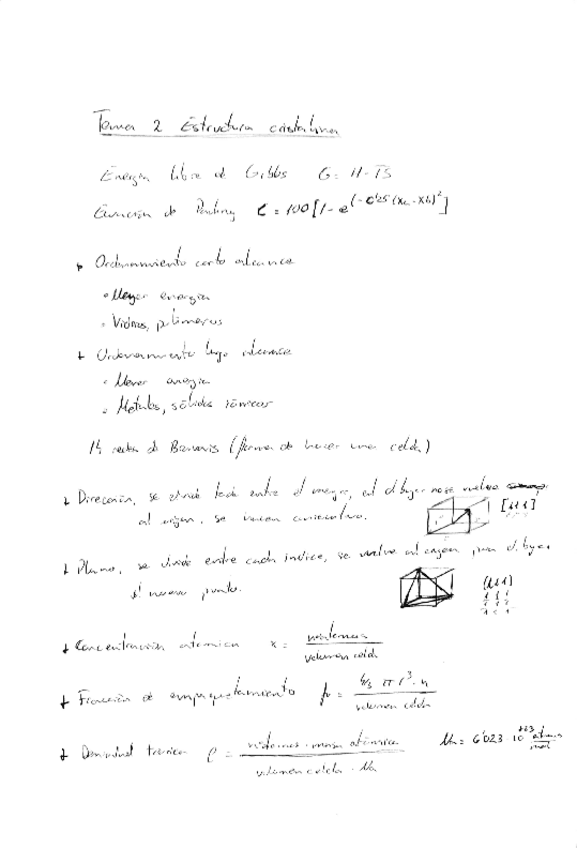 Tema 2 Estructura cristalina
Energía libre de Gibbs G = H - TS
Ecuación de Pauling C = 100 [1 - e^(-0'25 (Xa - Xb)^2]
Ordenamiento corto alcance
energía
Vidrios, polímeros
+ Ordenamiento largo alcance
energía
Metales, sólidos iónicos
14 redes de Bravais (forma de hacer una celda)
+ Dirección, se divide todo entre el mayor, al dibujar no se vuelve
al origen, se hacen consecutivo.
[111]
+ Plano, se divide entre cada índice, se vuelve al origen para dibujar
el nuevo punto.
(111)
1 1 1
+ Concentración atómica x = nºátomos / volumen celda
+ Fracción de empaquetamiento = 4/3 π r^3 · n / volumen celda
+ Densidad teórica ρ = nºátomos · masa atómica / volumen celda · Na
Na = 6'023 · 10^+23 átomos / mol